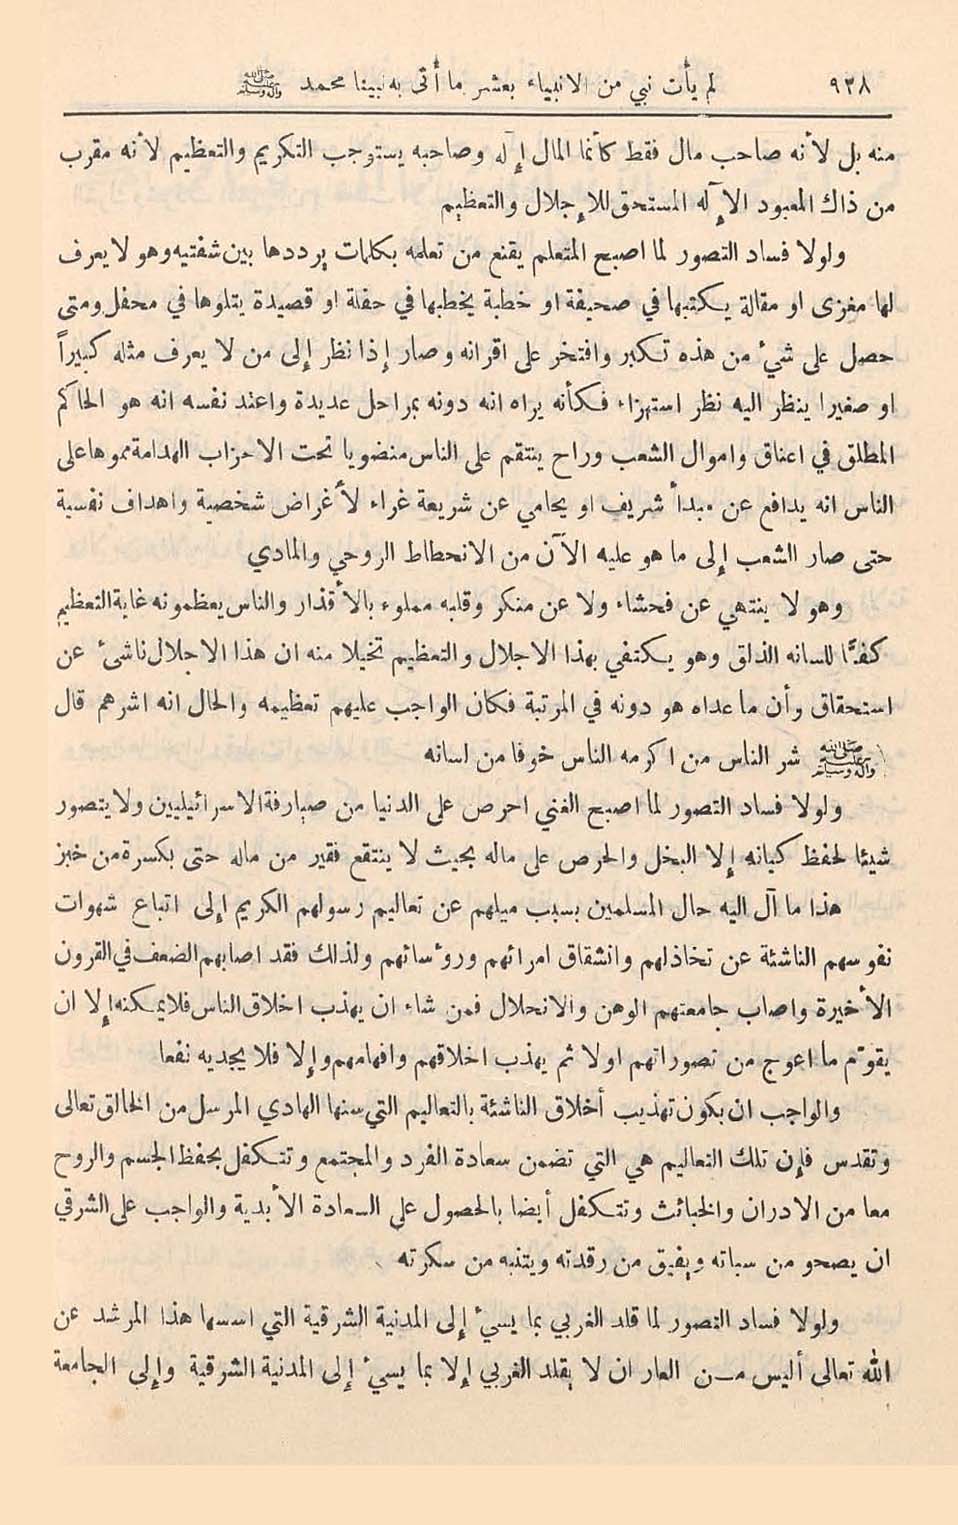 ٩٣٨ لم يأت نبي من الانبياء بعشر ما أتى به نبينا محمد ﷺ
منه بل لأنه صاحب مال فقط كأنما المال إآه وصاحبه يستوجب التكريم والتعظيم لأنه مقرب
من ذاك المعبود الاإآه المستحق للاإجلال والتعظيم
ولولا فساد التصور لما اصبح المتعلم يقنع من تعلمه بكلمات يرددها بين شفتيه وهو لا يعرف
لها مغزى او مقالة يكتبها في صحيفة او خطبة يخطبها في حفلة او قصيدة يتلوها في محفل ومتى
حصل على شيء من هذه تكبر وافتخر على اقرانه وصار إذا نظر إلى من لا يعرف مثله كبيراً
او صغيرا ينظر اليه نظر استهزاء فكأنه يراه انه دونه بمراحل عديدة واعتد نفسه انه هو الحاكم
المطلق في اعناق واموال الشعب وراح ينتقم على الناس منضويا تحت الاحزاب الهدامة مموها على
الناس انه يدافع عن مبدأ شريف او يحامي عن شريعة غراء لأغراض شخصية واهداف نفسية
حتى صار الشعب إلى ما هو عليه الآن من الانحطاط الروحي والمادي
وهو لا ينتهي عن فحشاء ولا عن منكر وقلبه مملوء بالأقذار والناس يعظمونه غاية التعظيم
كفـًّا للسانه الذلق وهو يكتفي بهذا الاجلال والتعظيم تخيلا منه ان هذا الاجلال ناشئ عن
استحقاق وأن ما عداه هو دونه في المرتبة فكان الواجب عليهم تعظيمه والحال انه اشرهم قال
ﷺ شر الناس من اكرمه الناس خوفا من لسانه
ولولا فساد التصور لما اصبح الغني احرص على الدنيا من صيارفة الاسرائيليين ولا يتصور
شيئا لحفظ كيانه إلا البخل والحرص على ماله بحيث لا ينتقع فقير من ماله حتى بكسرة من خبز
هذا ما آل اليه حال المسلمين بسبب ميلهم عن تعاليم رسولهم الكريم إلى اتباع شهوات
نفوسهم الناشئة عن تخاذلهم وانشقاق امرائهم ورؤسائهم ولذلك فقد اصابهم الضعف في القرون
الأخيرة واصاب جامعتهم الوهن والانحلال فمن شاء ان يهذب اخلاق الناس فلا يمكنه إلا ان
يقوّم ما اعوج من تصوراتهم اولا ثم يهذب اخلاقهم وافهامهم وإلا فلا يجديه نفعا
والواجب ان يكون تهذيب أخلاق الناشئة بالتعاليم التي سنها الهادي المرسل من الخالق تعالى
وتقدس فإن تلك التعاليم هي التي تضمن سعادة الفرد والمجتمع وتتكفل بحفظ الجسم والروح
معا من الادران والخبائث وتتكفل أيضا بالحصول على السعادة الأبدية والواجب على الشرقي
ان يصحو من سباته ويفيق من رقدته ويتنبه من سكرته
ولولا فساد التصور لما قلد الغربي بما يسيء إلى المدنية الشرقية التي اسسها هذا المرشد عن
الله تعالى أليس مـن العار ان لا يقلد الغربي إلا بما يسيء إلى المدنية الشرقية وإلى الجامعة